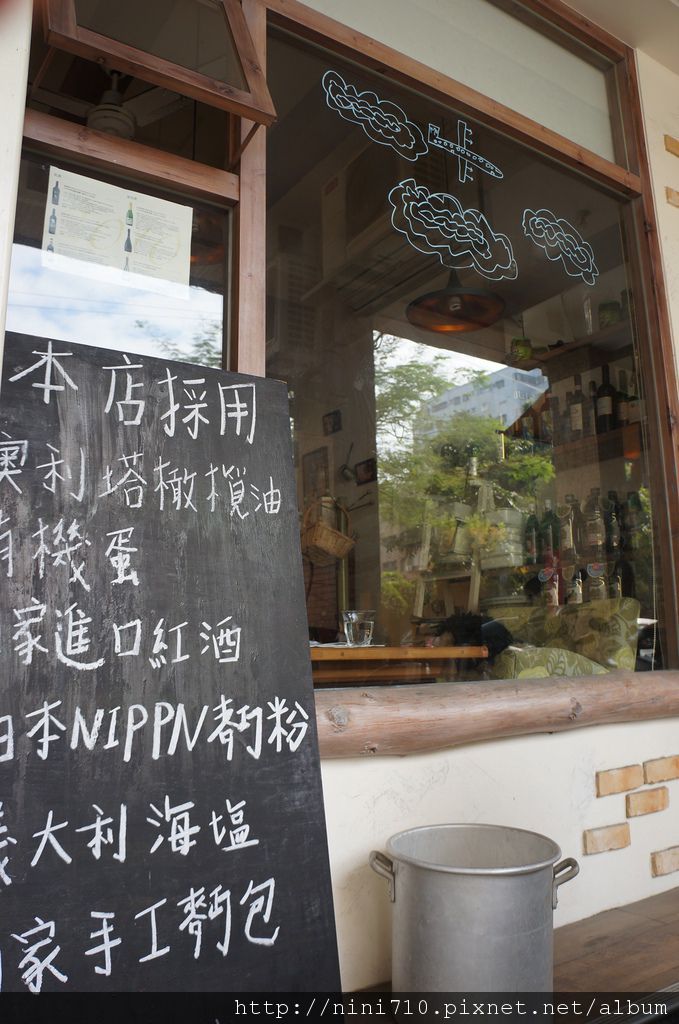 本店採用
澳利塔橄欖油
有機蛋
家進口紅酒
日本NIPPN麵粉
義大利海塩
家手工麵包
http://nini710.pixnet.net/album